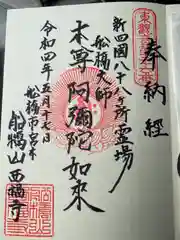 奉納経
新四國八十八ヶ所霊場
船橋大師
本尊阿彌陀如来
令和四年五月十七日
船橋市宮本
船橋山西福寺